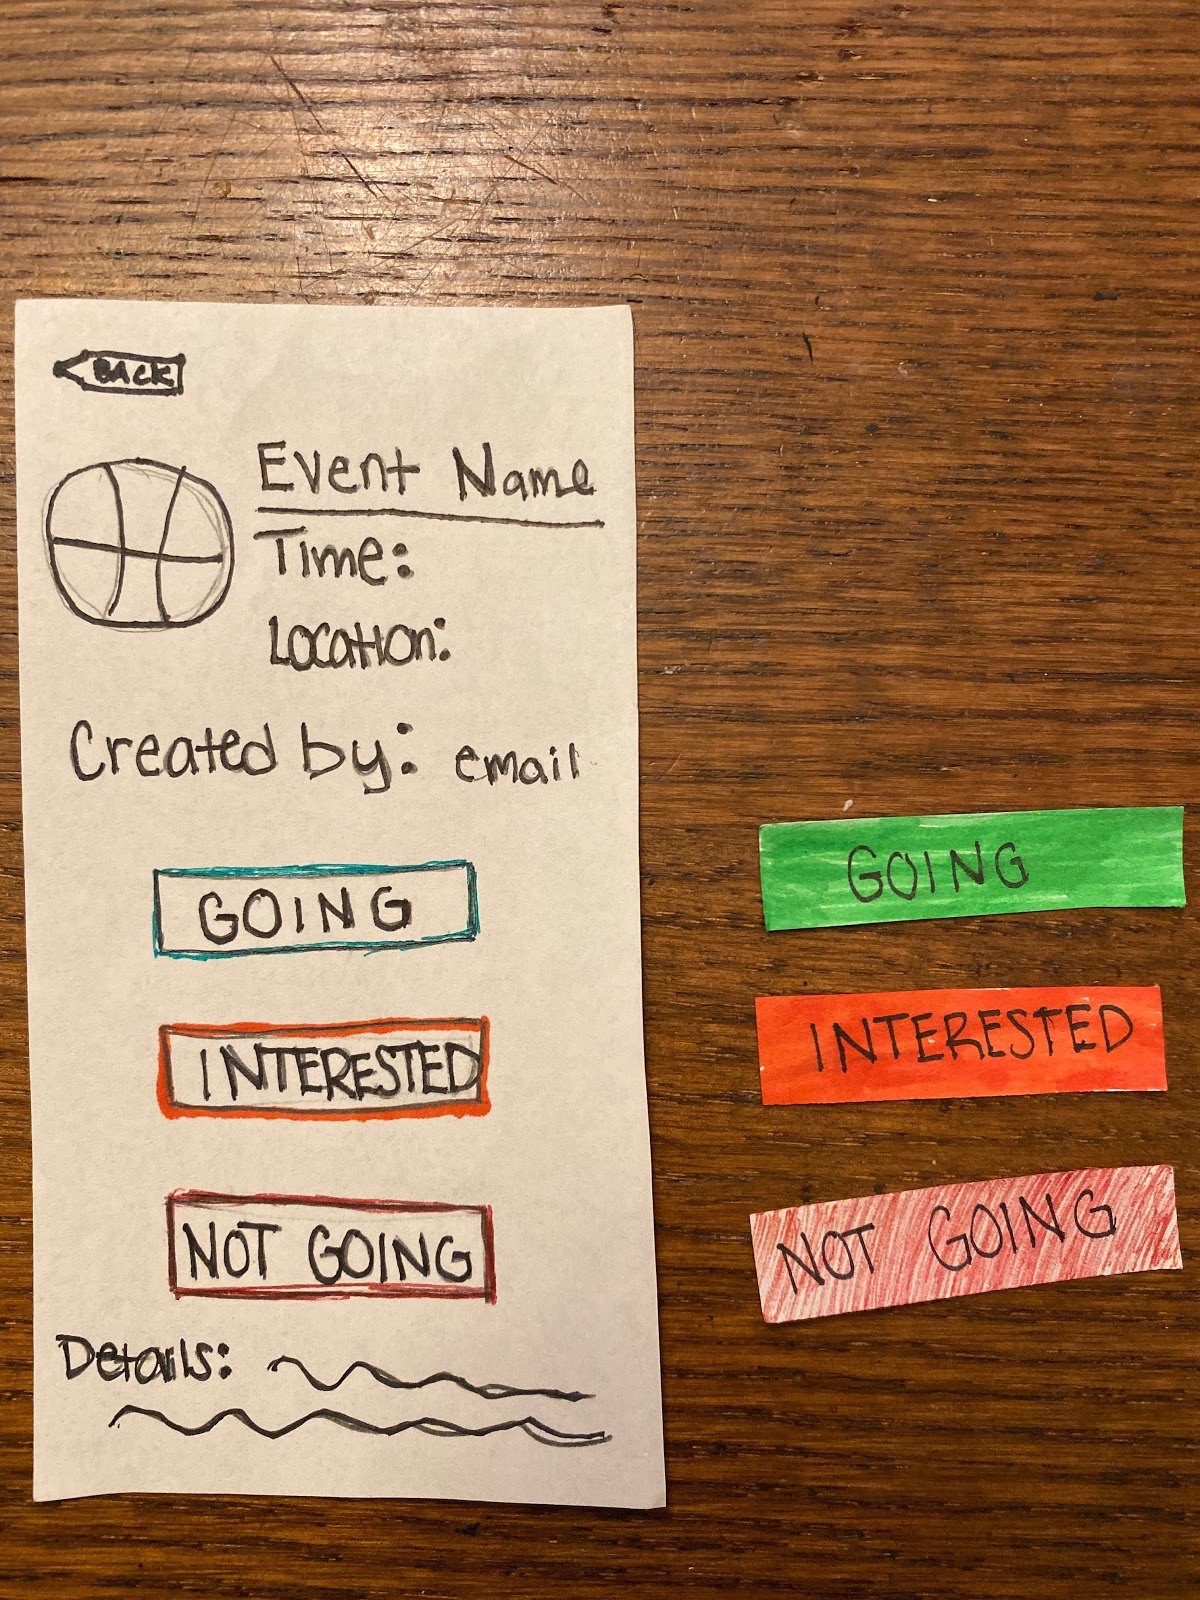 BACK
Event Name
Time:
Location:
Created by: email
GOING
INTERESTED
NOT GOING
Details:
GOING
INTERESTED
NOT GOING